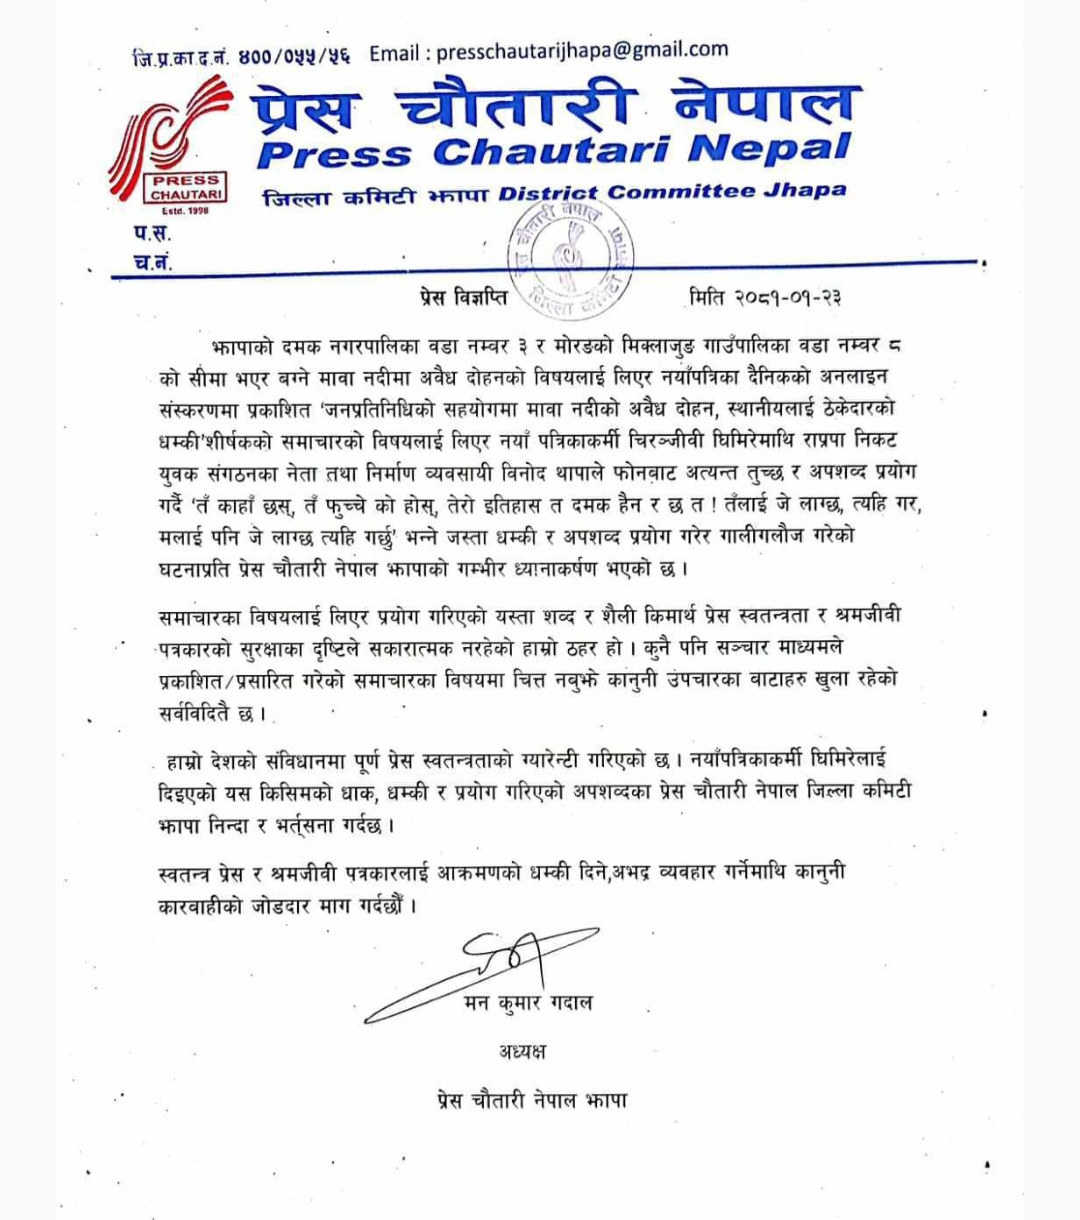 जि.प्र.का.द.नं. ४००/०५५/५६ Email : presschautarijhapa@gmail.com
प्रेस चौतारी नेपाल
Press Chautari Nepal
जिल्ला कमिटी झापा District Committee Jhapa
PRESS
CHAUTARI
Estd. 1998
प.स.
च.नं.
प्रेस चौतारी नेपाल
जिल्ला कमिटी झापा
प्रेस विज्ञप्ति मिति २०८१-०१-२३
झापाको दमक नगरपालिका वडा नम्बर ३ र मोरङको मिक्लाजुङ गाउँपालिका वडा नम्बर ८
को सीमा भएर बग्ने मावा नदीमा अवैध दोहनको विषयलाई लिएर नयाँपत्रिका दैनिकको अनलाइन
संस्करणमा प्रकाशित 'जनप्रतिनिधिको सहयोगमा मावा नदीको अवैध दोहन, स्थानीयलाई ठेकेदारको
धम्की'शीर्षकको समाचारको विषयलाई लिएर नयाँ पत्रिकाकर्मी चिरञ्जीवी घिमिरेमाथि राप्रपा निकट
युवक संगठनका नेता तथा निर्माण व्यवसायी विनोद थापाले फोनबाट अत्यन्त तुच्छ र अपशव्द प्रयोग
गर्दै 'तँ काहाँ छस्, तँ फुच्चे को होस्, तेरो इतिहास त दमक हैन र छ त ! तँलाई जे लाग्छ, त्यहि गर,
मलाई पनि जे लाग्छ त्यहि गर्छु' भन्ने जस्ता धम्की र अपशव्द प्रयोग गरेर गालीगलौज गरेको
घटनाप्रति प्रेस चौतारी नेपाल झापाको गम्भीर ध्यानाकर्षण भएको छ ।
समाचारका विषयलाई लिएर प्रयोग गरिएको यस्ता शव्द र शैली किमार्थ प्रेस स्वतन्त्रता र श्रमजीवी
पत्रकारको सुरक्षाका दृष्टिले सकारात्मक नरहेको हाम्रो ठहर हो । कुनै पनि सञ्चार माध्यमले
प्रकाशित/प्रसारित गरेको समाचारका विषयमा चित्त नबुझे कानुनी उपचारका बाटाहरु खुला रहेको
सर्वविदितै छ ।
हाम्रो देशको संविधानमा पूर्ण प्रेस स्वतन्त्रताको ग्यारेन्टी गरिएको छ । नयाँपत्रिकाकर्मी घिमिरेलाई
दिइएको यस किसिमको धाक, धम्की र प्रयोग गरिएको अपशव्दका प्रेस चौतारी नेपाल जिल्ला कमिटी
झापा निन्दा र भर्त्सना गर्दछ ।
स्वतन्त्र प्रेस र श्रमजीवी पत्रकारलाई आक्रमणको धम्की दिने,अभद्र व्यवहार गर्नेमाथि कानुनी
कारवाहीको जोडदार माग गर्दछौँ ।
मन कुमार गदाल
अध्यक्ष
प्रेस चौतारी नेपाल झापा